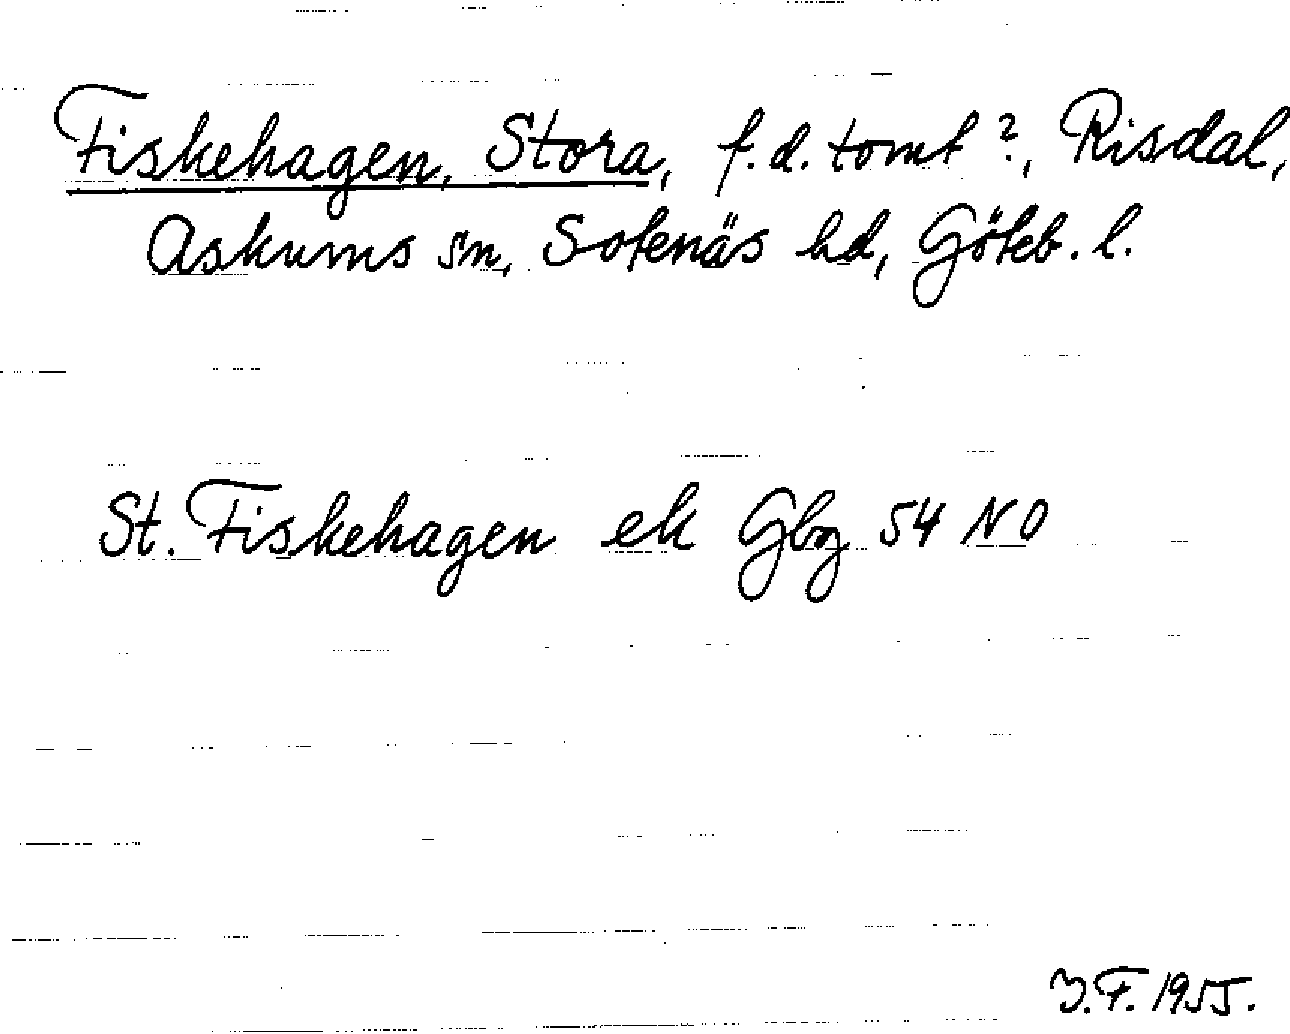 Fiskehagen, Stora, f.d. tomt?, Risdal,
Askums sn, Sotenäs hd, Göteb. l.
St. Fiskehagen ek Gbg 54 NO
J.F. 1955.